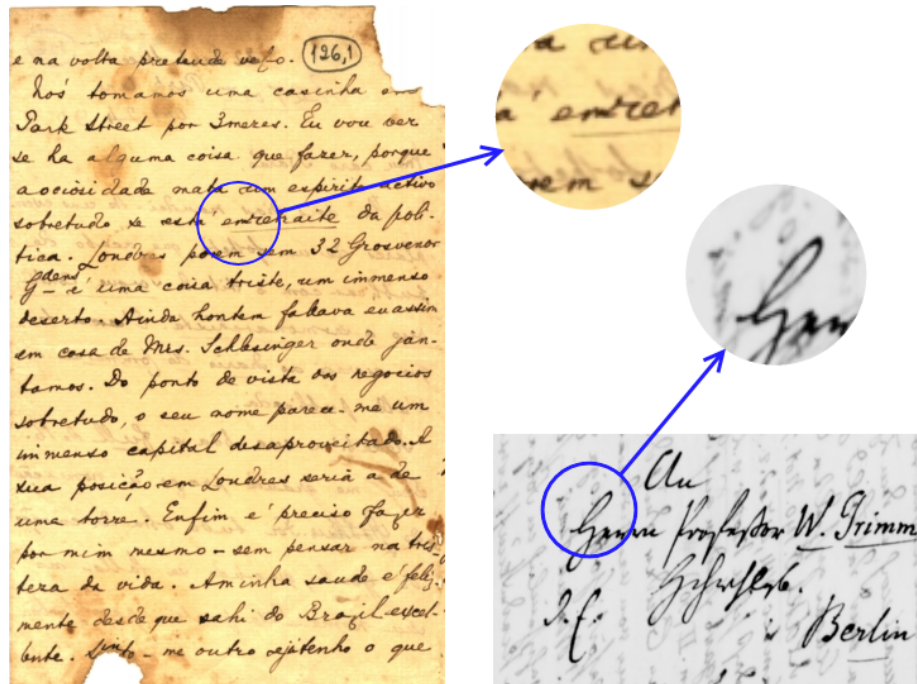 e na volta pretende vel-o. 126,1
Nós tomamos uma casinha em
Park Street por 3 mezes. Eu vou ver
se ha alguma coisa que fazer, porque
a ociosidade mata um espirito activo
sobretudo se está em retraite da poli-
tica. Londres porem sem 32 Grosvenor
Gdens é uma coisa triste, um immenso
deserto. Ainda hontem fallava eu assim
em casa de Mrs. Schlesinger onde jan-
tamos. Do ponto de vista dos negocios
sobretudo, o seu nome parece-me um
immenso capital desaproveitado. A
sua posição em Londres seria a de
uma torre. Enfim é preciso fazer
por mim mesmo – sem pensar na tris-
teza da vida. A minha saude é feliz-
mente desde que sahi do Brazil excel-
lente. Sinto-me outro e já tenho o que
a em retrai
An
Herrn Professor W. Grimm
Berlin
Herr